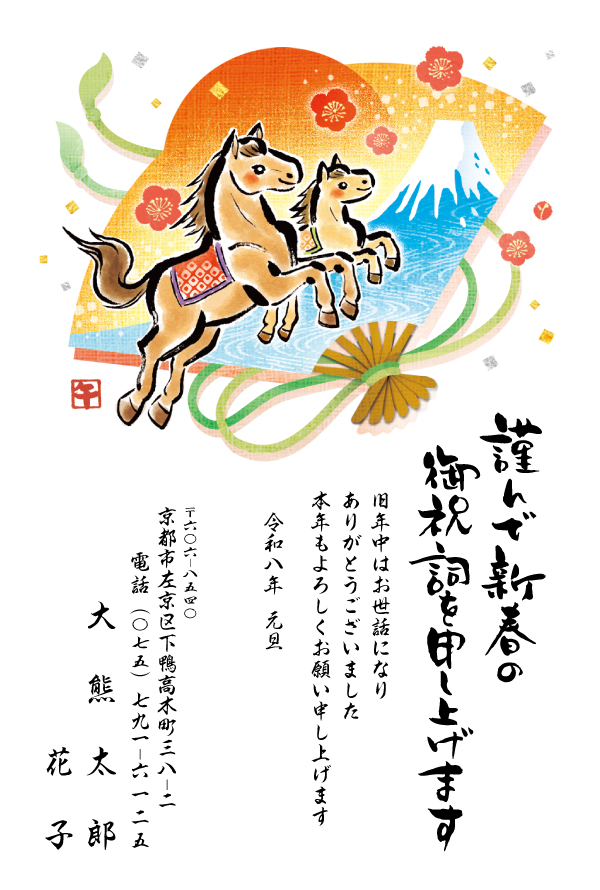 午
謹んで新春の
御祝詞を申し上げます
旧年中はお世話になり
ありがとうございました
本年もよろしくお願い申し上げます
令和八年 元旦
〒六〇六-八五四〇
京都市左京区下鴨高木町三八-二
電話(〇七五)七九一-六一二五
大熊 太郎
花子